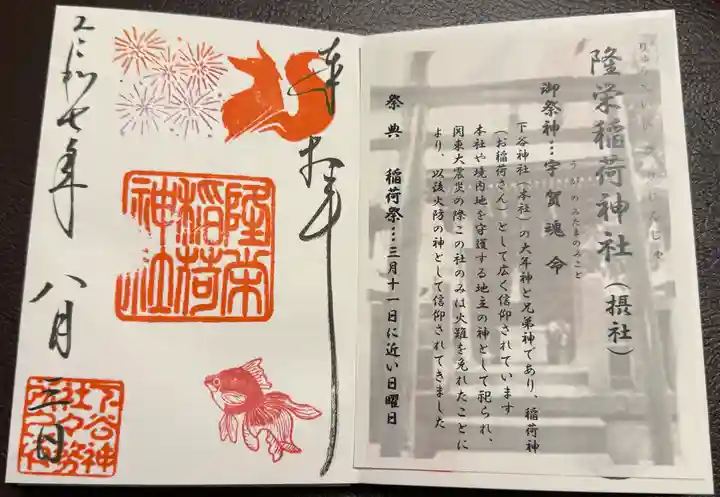 奉拝
隆栄
稲荷
神社
令和七年 八月 三日
下谷神
社
りゅうえいいなりじんじゃ
隆栄稲荷神社(摂社)
うがのみたまのみこと
御祭神…宇賀魂命
下谷神社(本社)の大年神と兄弟神であり、稲荷神
(お稲荷さん)として広く信仰されています
本社や境内地を守護する地主の神として祀られ、
関東大震災の際この社のみは火難を免れたことに
より、以後火防の神として信仰されてきました
祭典 稲荷祭…三月十一日に近い日曜日